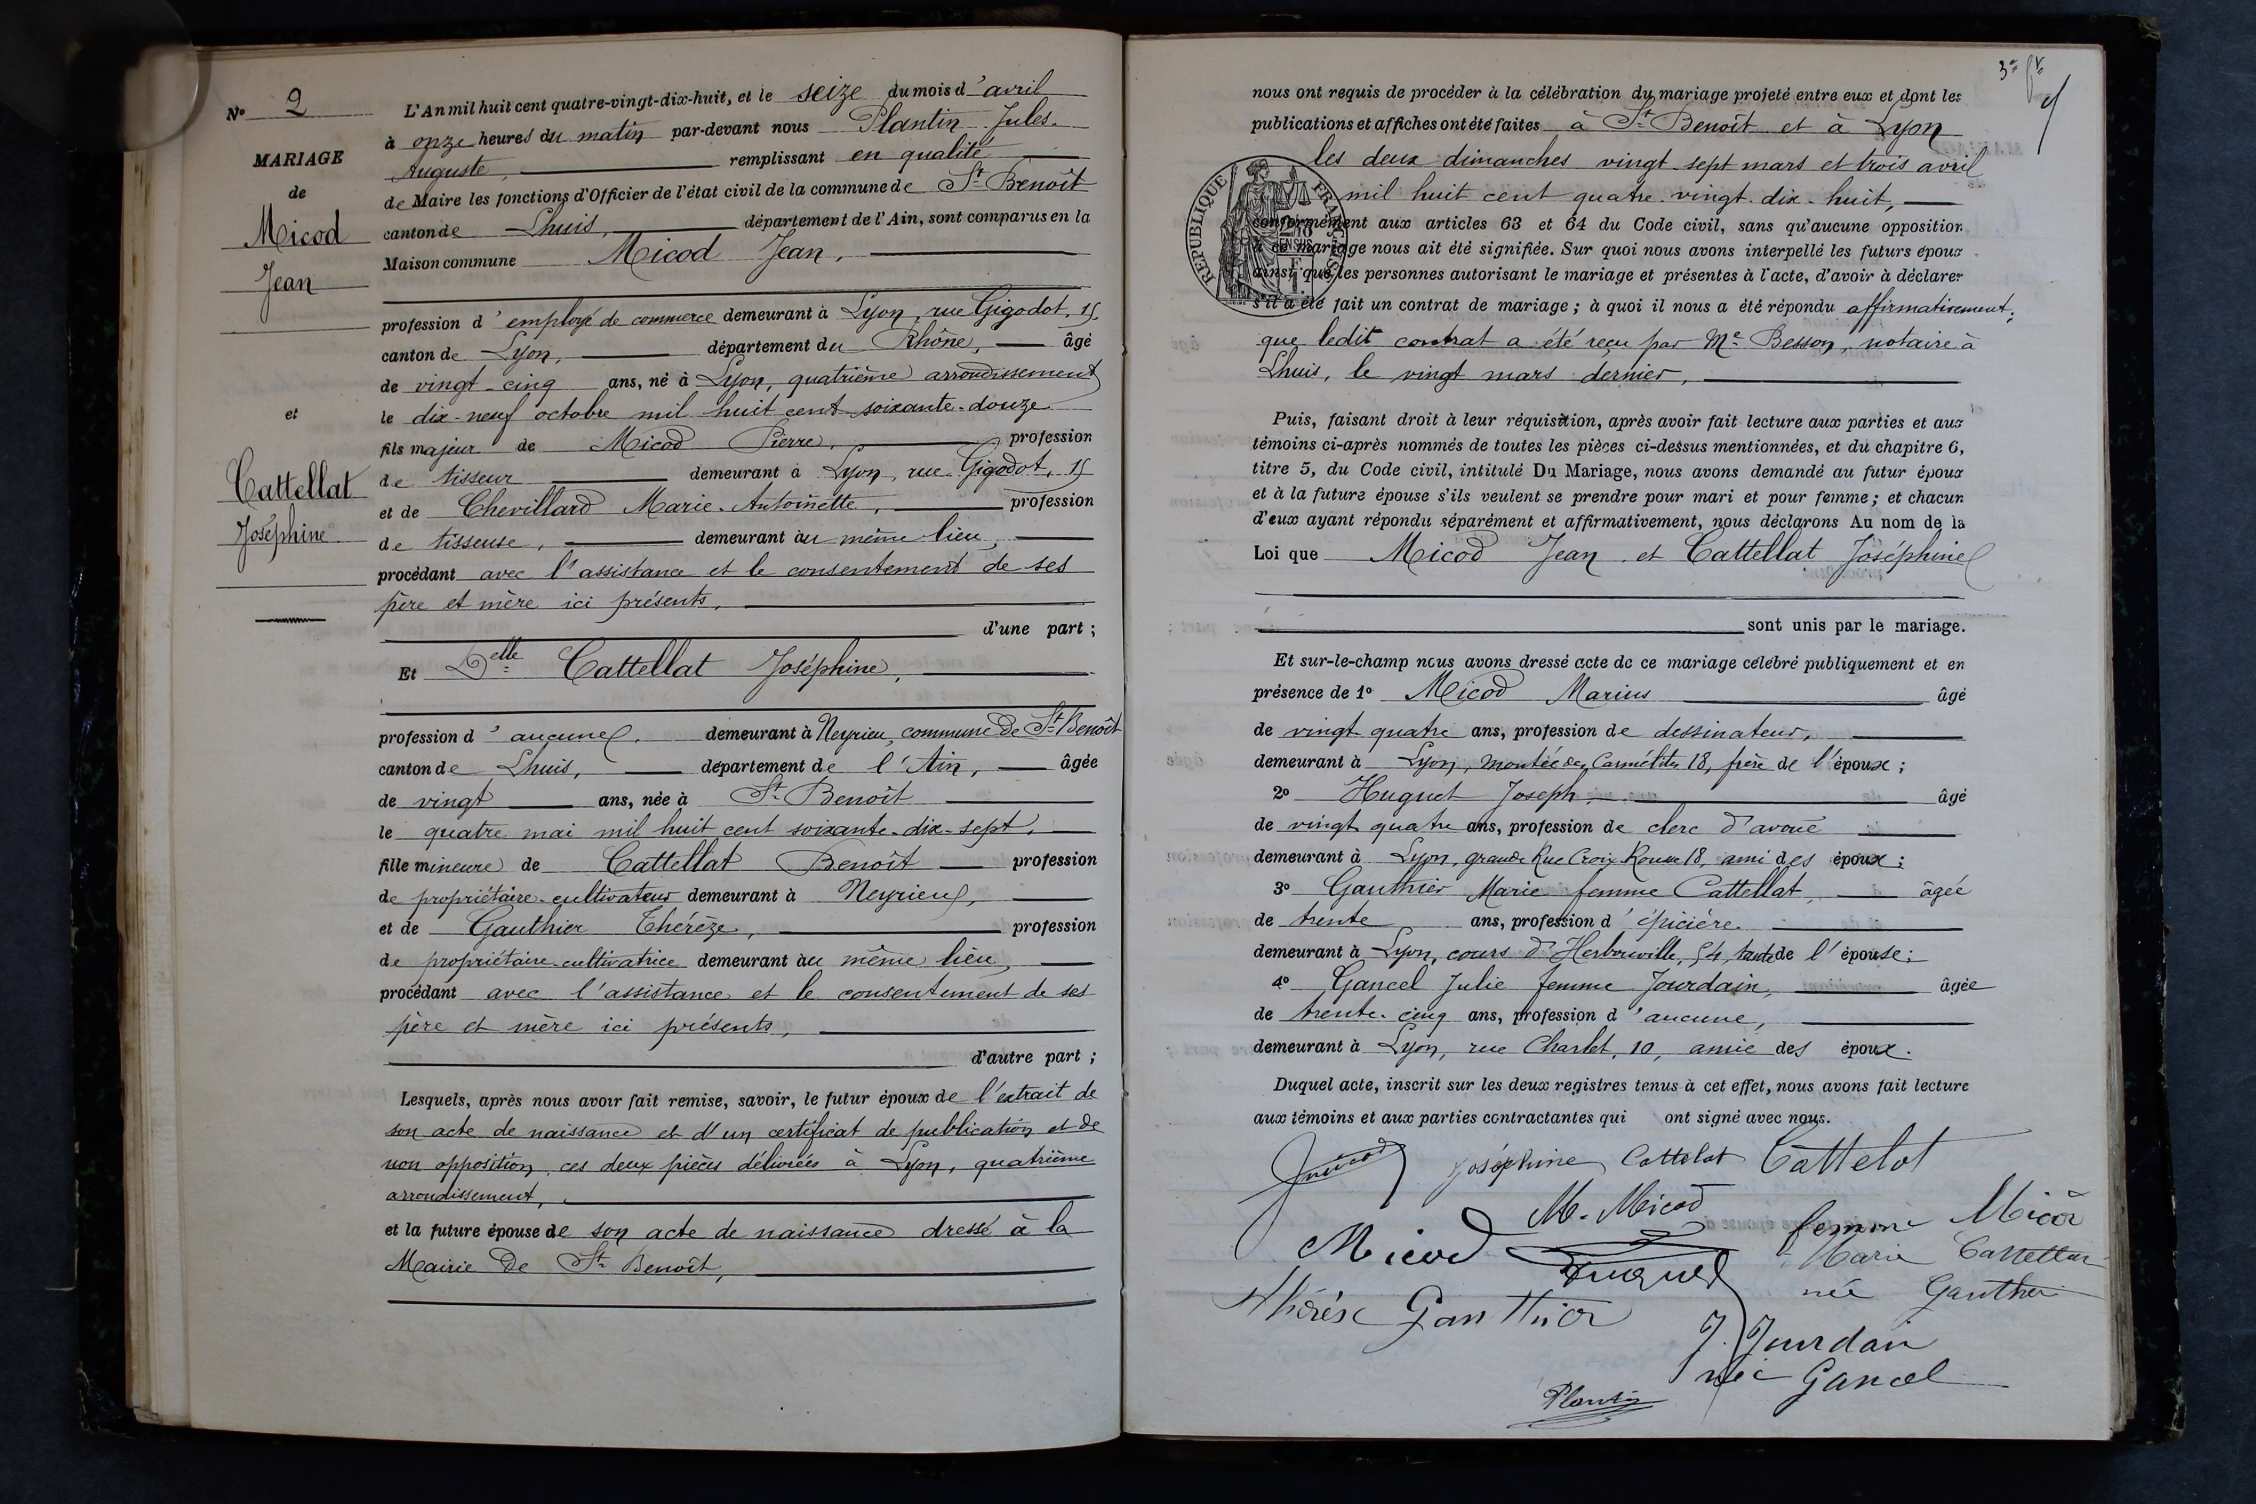 No 2
MARIAGE
de
Micod
Jean
et
Cattellat
Joséphine
L'An mil huit cent quatre-vingt-dix-huit, et le seize du mois d'avril
à onze heures du matin par-devant nous Plantin Jules
Auguste, remplissant en qualité
de Maire les fonctions d'Officier de l'état civil de la commune de St Benoît
canton de Lhuis, département de l'Ain, sont comparus en la
Maison commune Micod Jean,
profession d'employé de commerce demeurant à Lyon, rue Gigodot, 15
canton de Lyon, département du Rhône, âgé
de vingt-cinq ans, né à Lyon, quatrième arrondissement
le dix-neuf octobre mil huit cent soixante-douze
fils majeur de Micod Pierre, profession
de tisseur demeurant à Lyon, rue Gigodot, 15
et de Chevillard Marie-Antoinette, profession
de tisseuse, demeurant au même lieu,
procédant avec l'assistance et le consentement de ses
père et mère ici présents,
d'une part ;
Et Delle Cattellat Joséphine,
profession d'aucune, demeurant à Neyrieu, commune de St Benoît
canton de Lhuis, département de l'Ain, âgée
de vingt ans, née à St Benoît
le quatre mai mil huit cent soixante-dix-sept,
fille mineure de Cattellat Benoît profession
de propriétaire-cultivateur demeurant à Neyrieu,
et de Gauthier Thérèze, profession
de propriétaire-cultivatrice demeurant au même lieu,
procédant avec l'assistance et le consentement de ses
père et mère ici présents,
d'autre part ;
Lesquels, après nous avoir fait remise, savoir, le futur époux de l'extrait de
son acte de naissance et d'un certificat de publication et de
non opposition, ces deux pièces délivrées à Lyon, quatrième
arrondissement,
et la future épouse de son acte de naissance dressé à la
Mairie de St Benoît,
nous ont requis de procéder à la célébration du mariage projeté entre eux et dont les
publications et affiches ont été faites à St Benoît et à Lyon
les deux dimanches vingt-sept mars et trois avril
mil huit cent quatre-vingt-dix-huit,
RÉPUBLIQUE FRANÇAISE
conformément aux articles 63 et 64 du Code civil, sans qu'aucune opposition
à ce mariage nous ait été signifiée. Sur quoi nous avons interpellé les futurs époux
ainsi que les personnes autorisant le mariage et présentes à l'acte, d'avoir à déclarer
s'il a été fait un contrat de mariage ; à quoi il nous a été répondu affirmativement,
que ledit contrat a été reçu par Me Besson, notaire à
Lhuis, le vingt mars dernier,
Puis, faisant droit à leur réquisition, après avoir fait lecture aux parties et aux
témoins ci-après nommés de toutes les pièces ci-dessus mentionnées, et du chapitre 6,
titre 5, du Code civil, intitulé Du Mariage, nous avons demandé au futur époux
et à la future épouse s'ils veulent se prendre pour mari et pour femme ; et chacun
d'eux ayant répondu séparément et affirmativement, nous déclarons Au nom de la
Loi que Micod Jean et Cattellat Joséphine
sont unis par le mariage.
Et sur-le-champ nous avons dressé acte de ce mariage célébré publiquement et en
présence de 1o Micod Marius âgé
de vingt-quatre ans, profession de dessinateur,
demeurant à Lyon, montée des Carmélites 18, frère de l'époux ;
2o Huguet Joseph, âgé
de vingt-quatre ans, profession de clerc d'avoué
demeurant à Lyon, grande Rue Croix Rousse 18, ami des époux ;
3o Gauthier Marie femme Cattellat, âgée
de trente ans, profession d'épicière
demeurant à Lyon, cours d'Herbouville, 54, tante de l'épouse ;
4o Gancel Julie femme Jourdain, âgée
de trente-cinq ans, profession d'aucune,
demeurant à Lyon, rue Charlet, 10, amie des époux.
Duquel acte, inscrit sur les deux registres tenus à cet effet, nous avons fait lecture
aux témoins et aux parties contractantes qui ont signé avec nous.
JMicod Joséphine Cattelat Cattelat
M. Micod femme Micod
Micod Huguet Marie Cattellat
née Gauthier
Thérèse Gauthier
J. Jourdain
née Gancel
Plantin